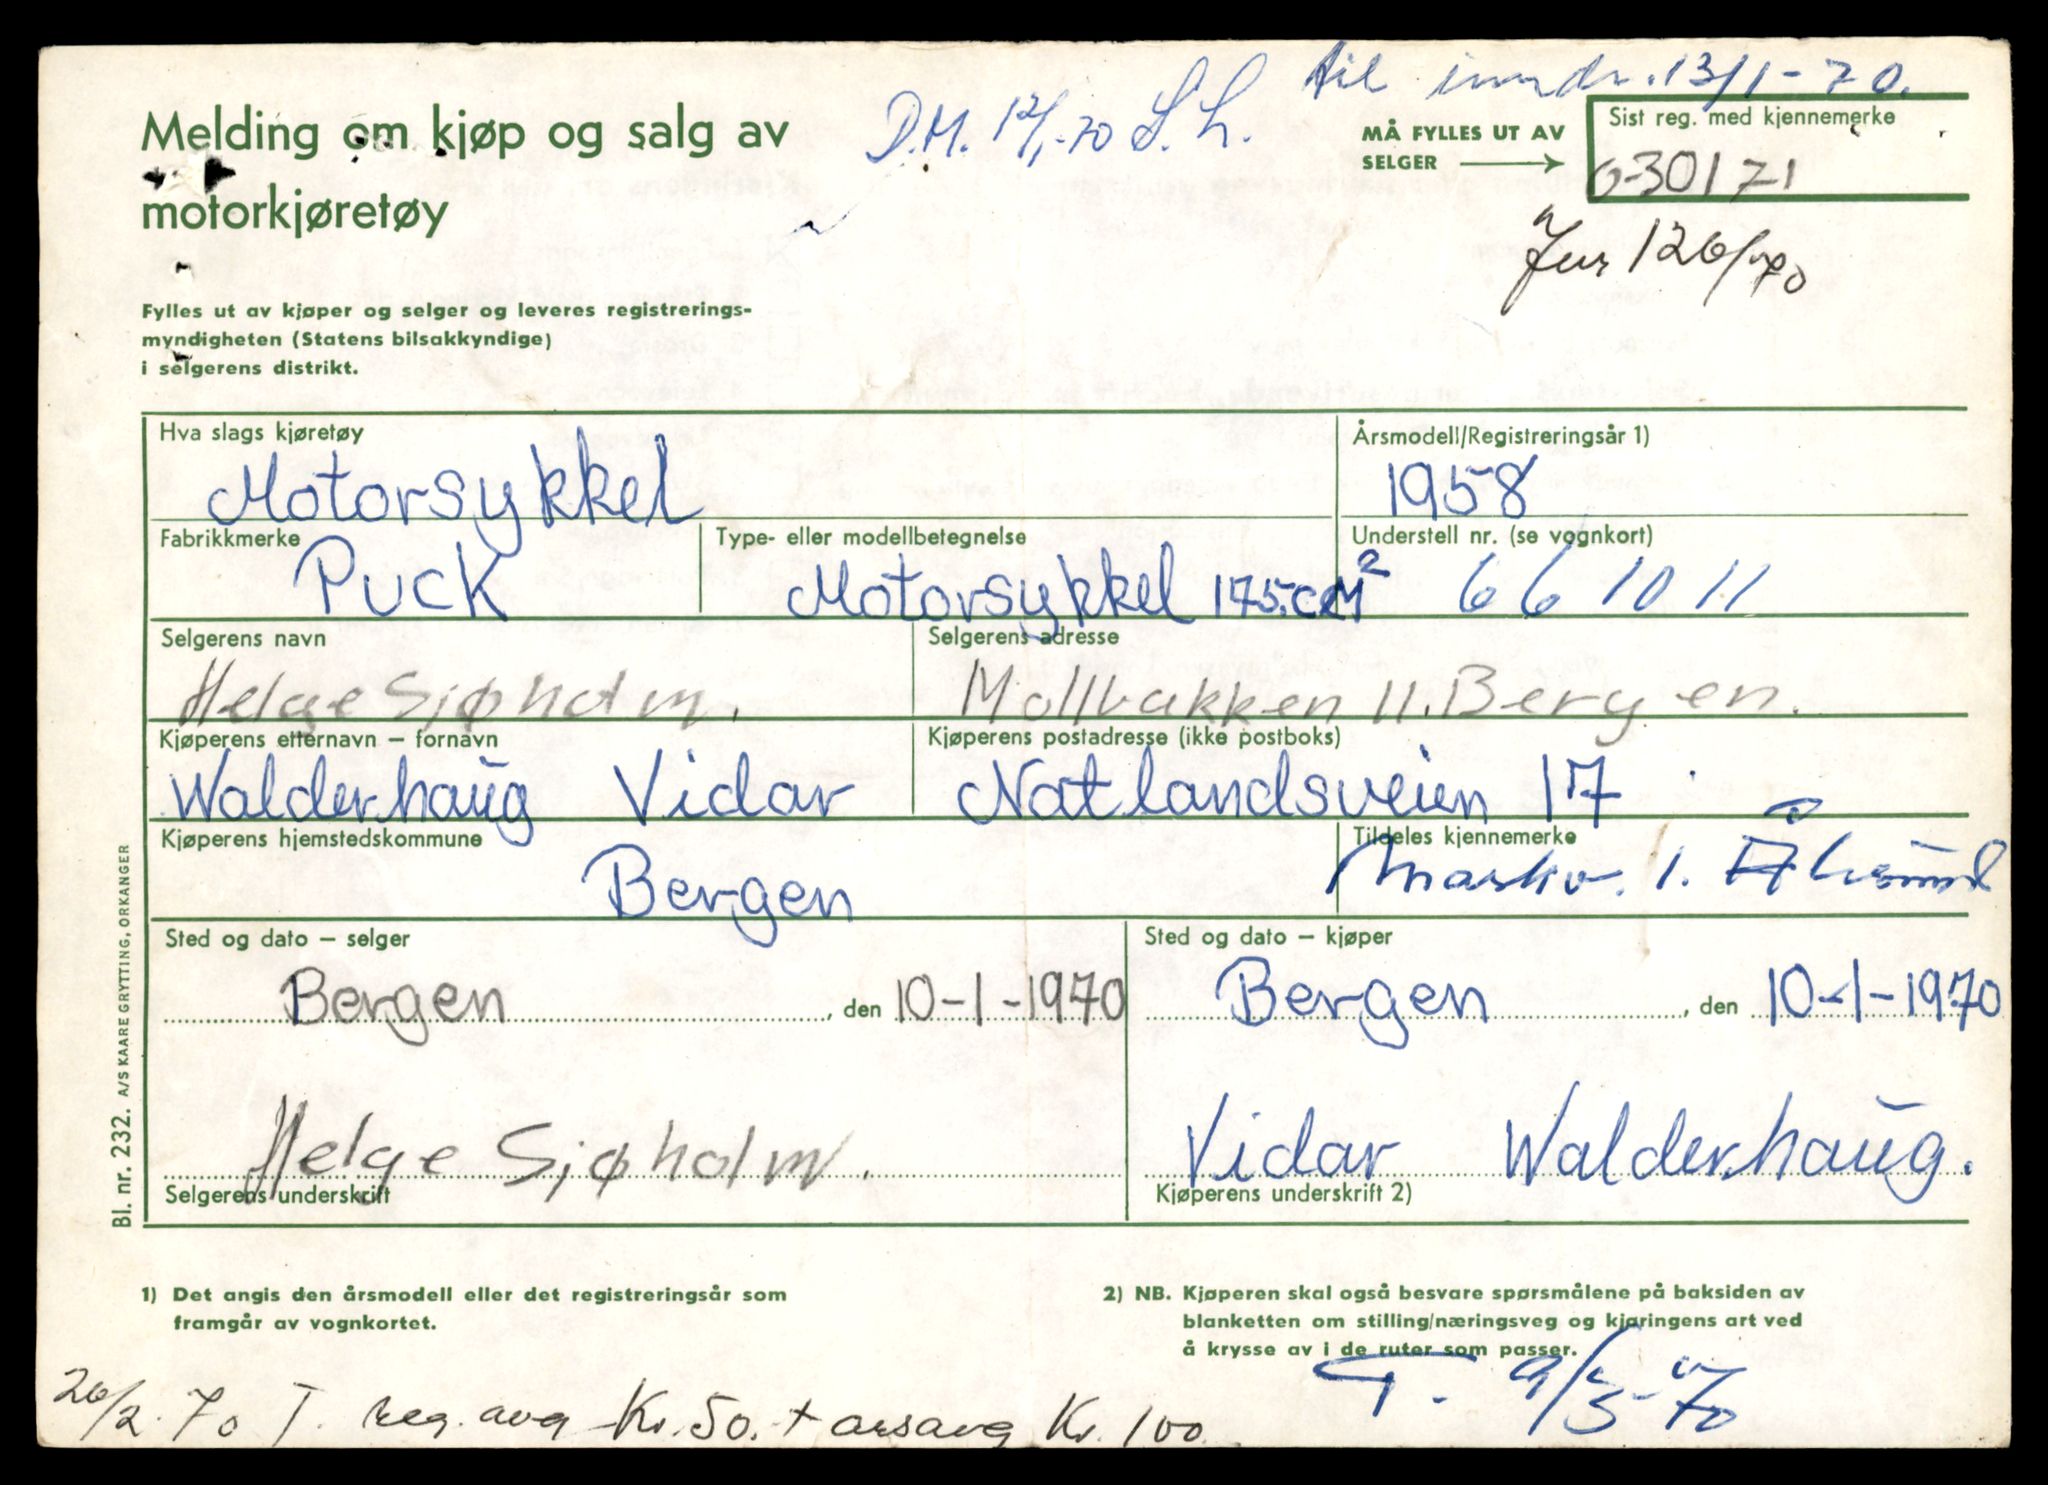 til inndr. 13/1-70.
D.M. 12/1-70 S.L.
Melding om kjøp og salg av
motorkjøretøy
MÅ FYLLES UT AV
SELGER
Sist reg. med kjennemerke
O-30171
Jur 126/70
Fylles ut av kjøper og selger og leveres registrerings-
myndigheten (Statens bilsakkyndige)
i selgerens distrikt.
Hva slags kjøretøy
Motorsykkel
Årsmodell/Registreringsår 1)
1958
Fabrikkmerke
Puck
Type- eller modellbetegnelse
Motorsykkel 175.cm²
Understell nr. (se vognkort)
661011
Selgerens navn
Helge Sjøholm.
Selgerens adresse
Mollbakken 11. Bergen.
Kjøperens etternavn – fornavn
Walderhaug Vidar
Kjøperens postadresse (ikke postboks)
Natlandsveien 17
Kjøperens hjemstedskommune
Bergen
Tildeles kjennemerke
1. Ålesund
Sted og dato – selger
Bergen, den 10-1-1970
Sted og dato – kjøper
Bergen, den 10-1-1970
Helge Sjøholm.
Selgerens underskrift
Vidar Walderhaug.
Kjøperens underskrift 2)
Bl. nr. 232. A/S KAARE GRYTTING, ORKANGER
1) Det angis den årsmodell eller det registreringsår som
framgår av vognkortet.
2) NB. Kjøperen skal også besvare spørsmålene på baksiden av
blanketten om stilling/næringsveg og kjøringens art ved
å krysse av i de ruter som passer.
T. 9/3-70
26/2.70 T. reg.avg Kr. 50. + årsavg Kr. 100